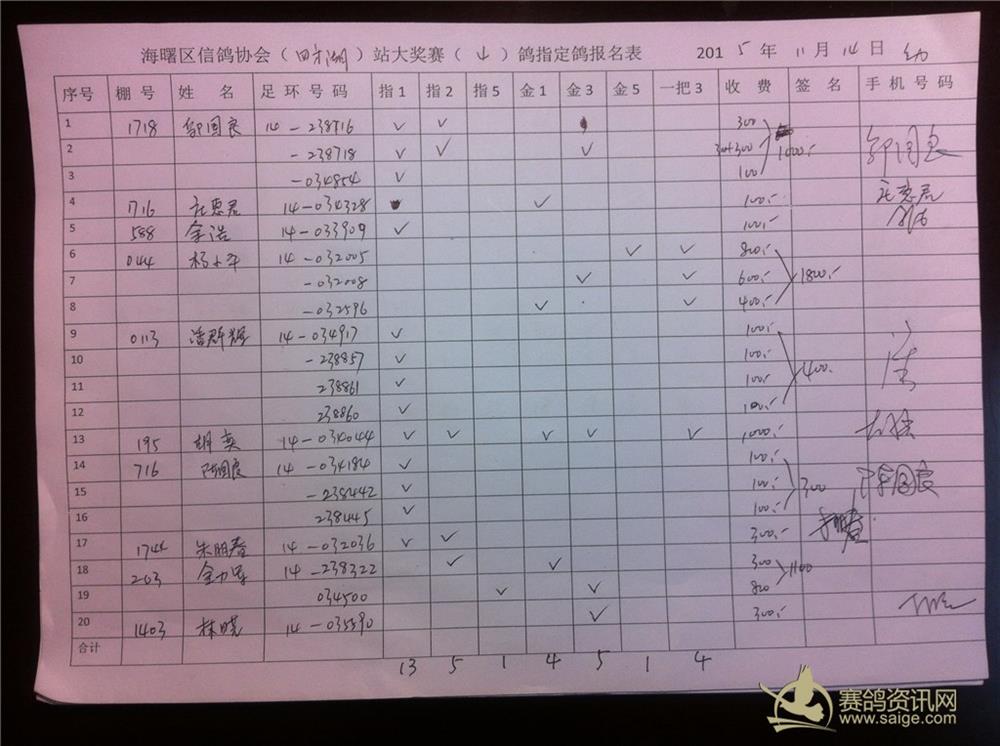 海曙区信鸽协会（ ）站大奖赛（ ）鸽指定鸽报名表 2015年11月14日
序号 棚号 姓 名 足环号码 指1 指2 指5 金1 金3 金5 一把3 收 费 签 名 手机号码
1 1718 邹国良 14-238716 ✓ ✓ 300
2 -238718 ✓ ✓ ✓ 300+300
3 -034854 ✓ 100
4 1716 14-034328 ✓ 100.-
5 588 余浩 14-033909 ✓ 100.-
6 044 杨小平 14-032005 ✓ ✓ 800.-
7 -032008 ✓ ✓ 600.- 1800.-
8 -032596 ✓ ✓ 400.-
9 0113 潘群辉 14-034917 ✓ 100.-
10 -238857 ✓ 100.-
11 238861 ✓ 100.- 400.
12 238860 ✓ 100.-
13 195 胡英 14-034044 ✓ ✓ ✓ ✓ ✓ 1000.-
14 716 陈国良 14-034184 ✓ 100.-
15 -238442 ✓ 100.- 300
16 238445 ✓ 100.-
17 174 朱明春 14-032036 ✓ ✓ 300.-
18 203 14-238322 ✓ ✓ 300 1100
19 034500 ✓ ✓ 800
20 1403 林晓 14-035590 ✓ 300.-
合计
13 5 1 4 5 1 4
赛鸽资讯网
www.saige.com